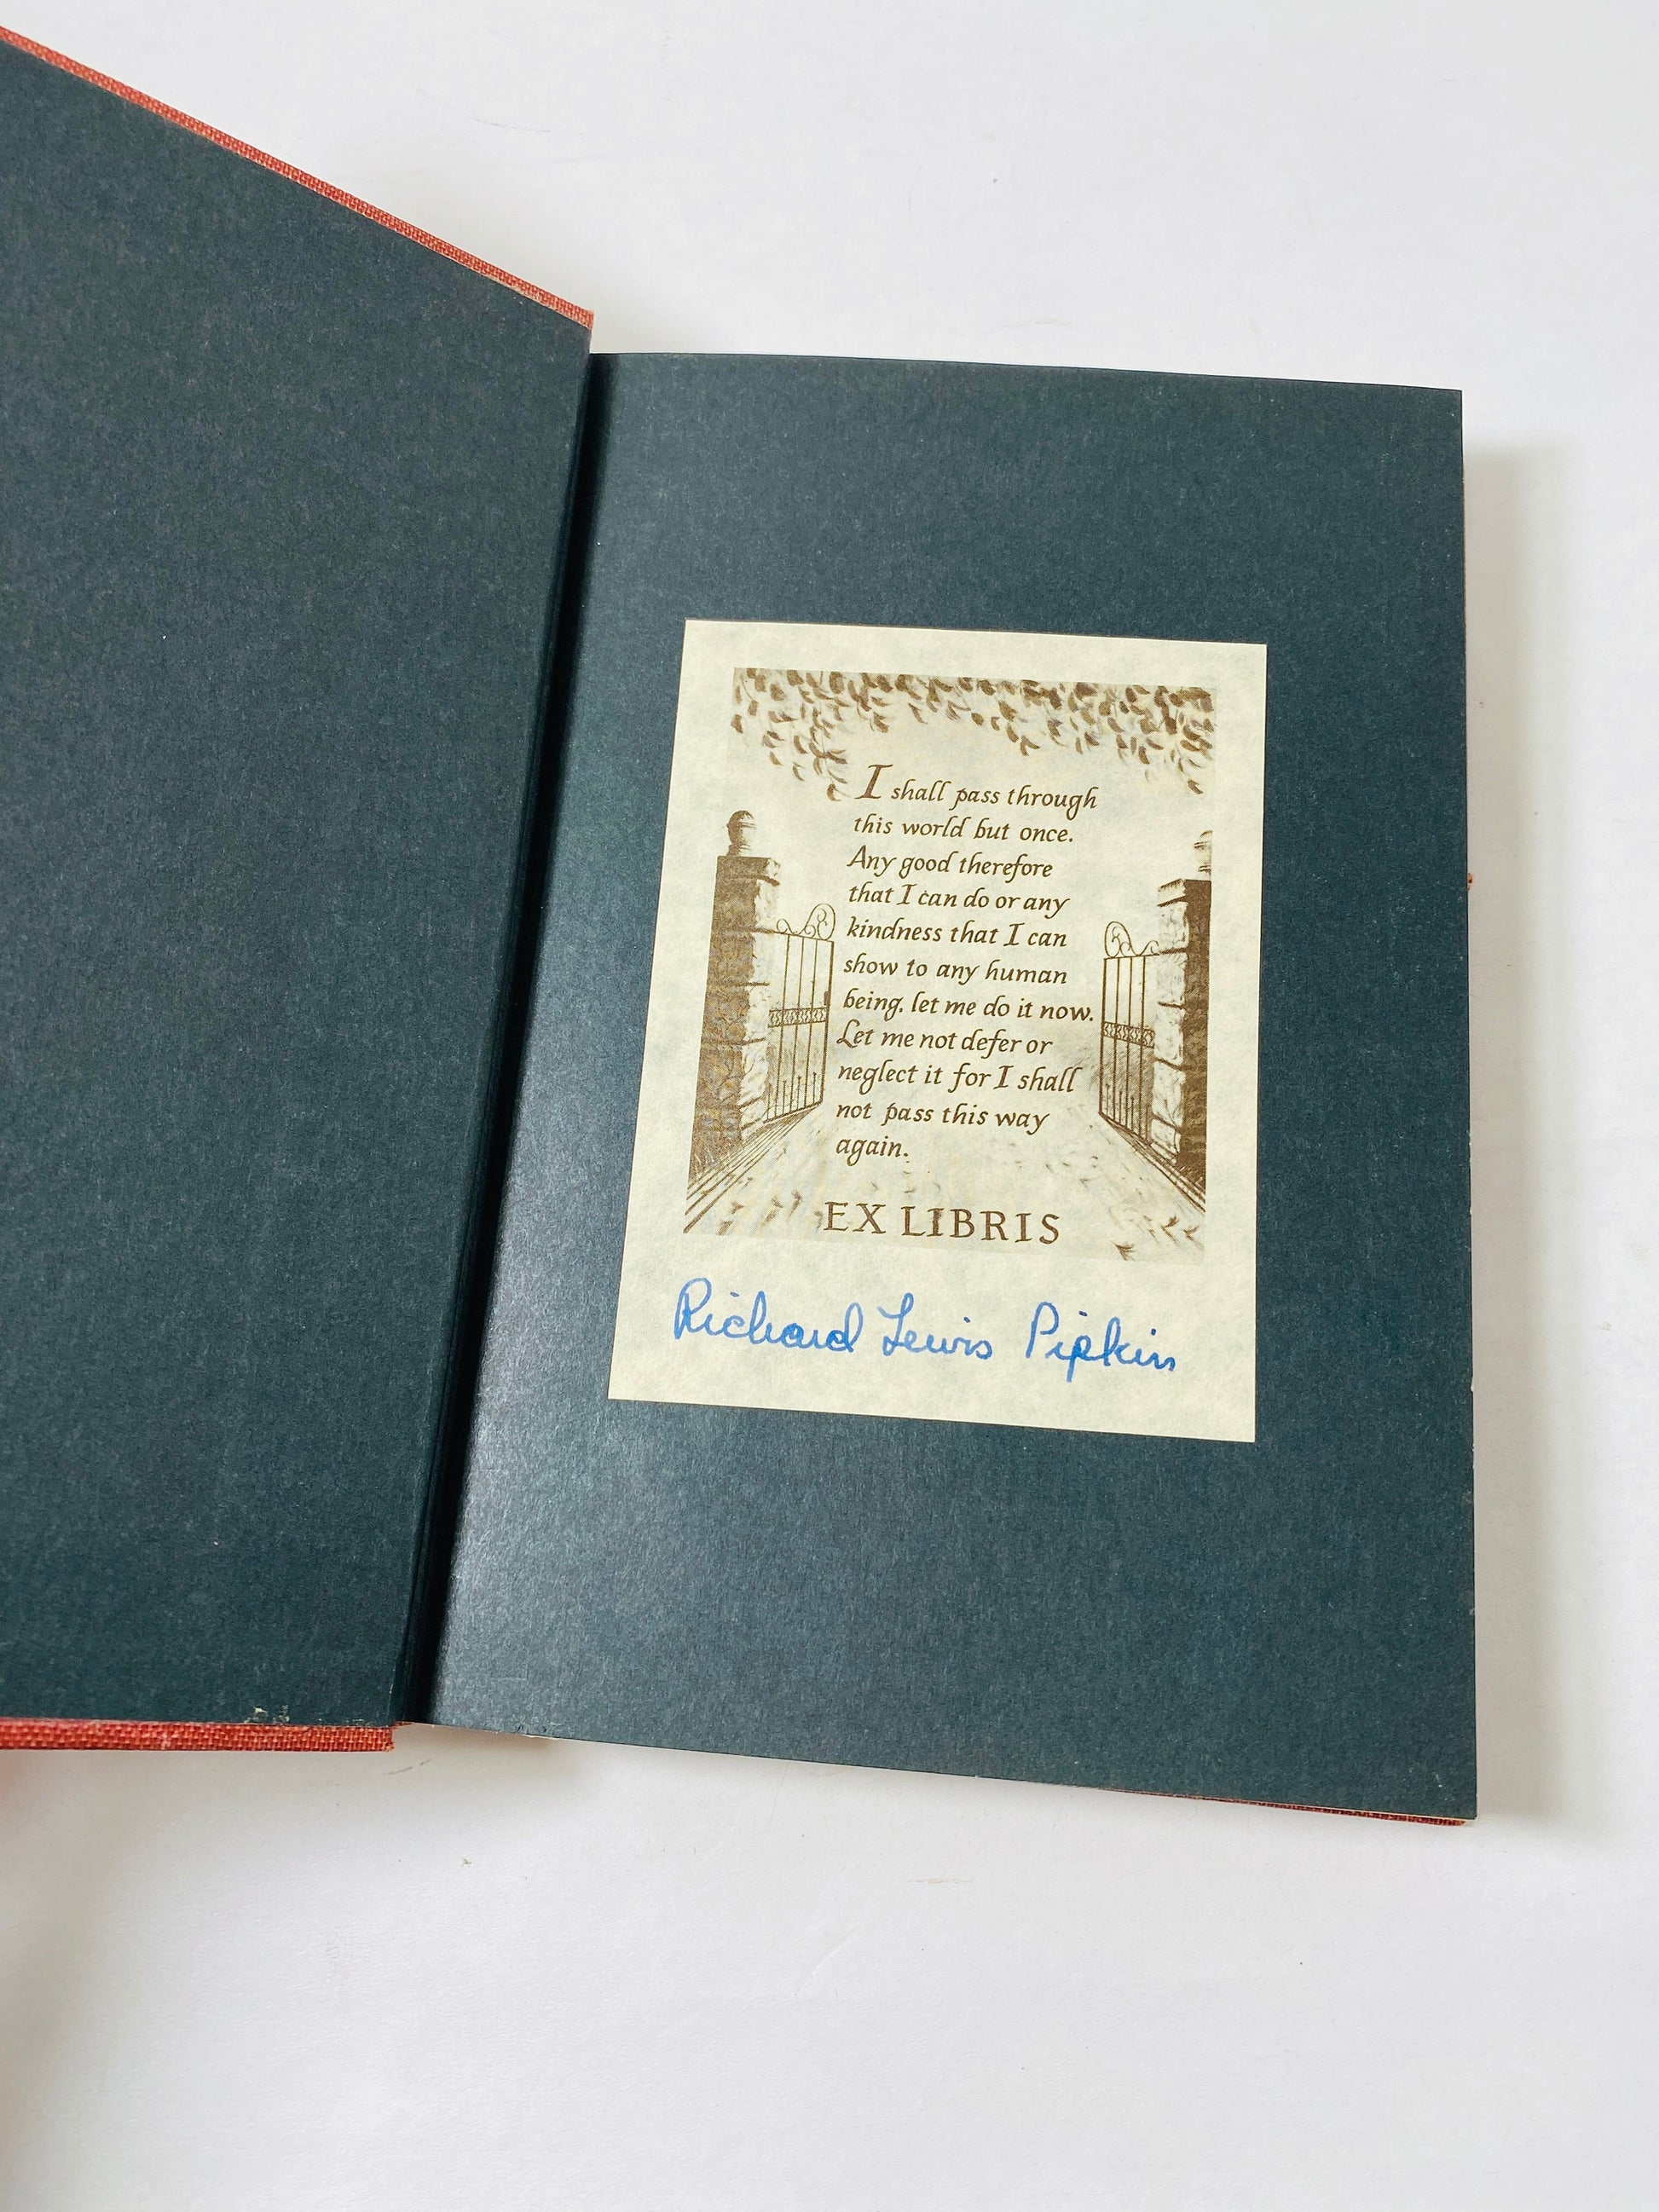 I shall pass through
this world but once.
Any good therefore
that I can do or any
kindness that I can
show to any human
being, let me do it now.
Let me not defer or
neglect it for I shall
not pass this way
again.
EX LIBRIS
Richard Lewis Pipkin